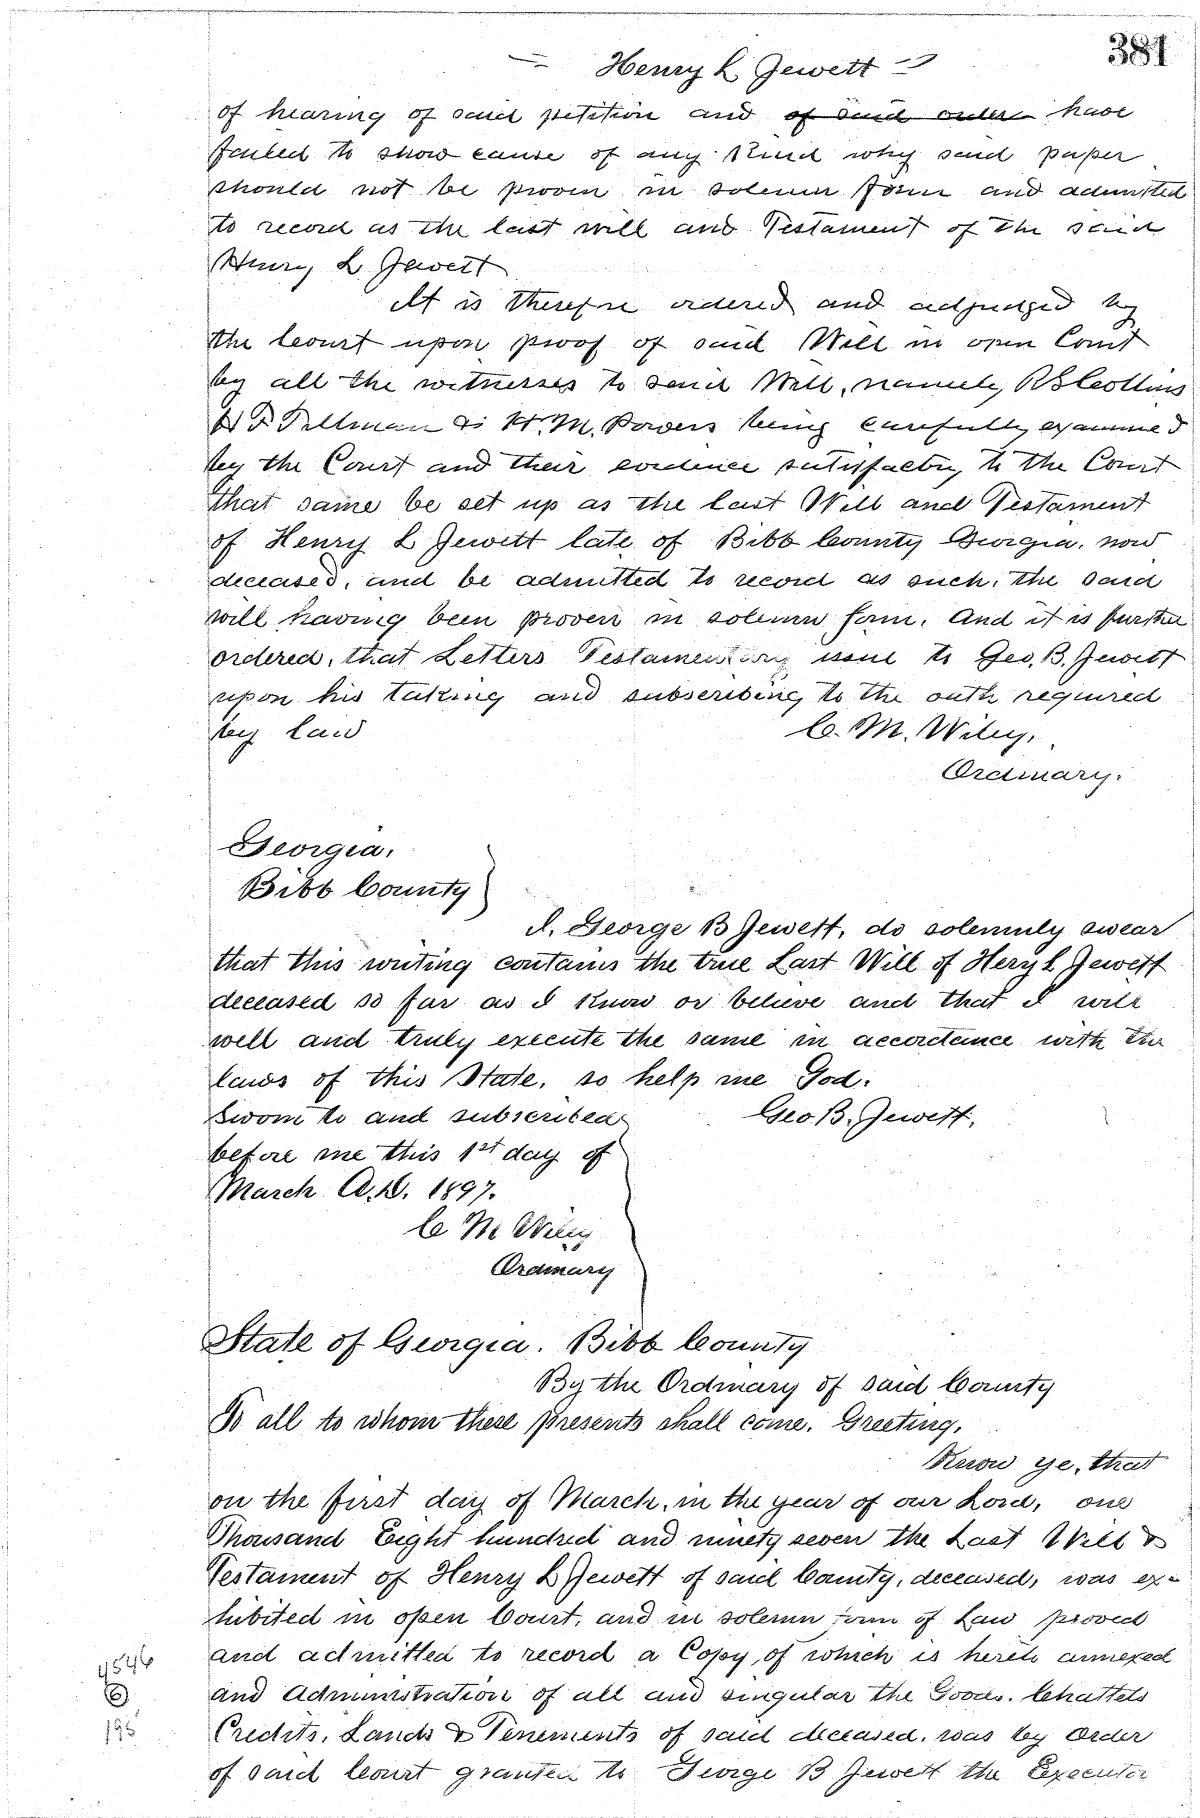 381
= Henry L Jewett =
of hearing of said petition and of said order have
failed to show cause of any Kind why said paper
should not be proven in solemn form and admitted
to record as the last will and Testament of the said
Henry L Jewett
It is therefore ordered and adjudged by
the Court upon proof of said Will in open Court
by all the witnesses to said Will, namely R S Collins
H T Tillman & H. M. Powers being carefully examined
by the Court and their evidence satisfactory to the Court
that same be set up as the last Will and Testament
of Henry L Jewett late of Bibb County Georgia, now
deceased, and be admitted to record as such, the said
will having been proven in solemn form. And it is further
ordered, that Letters Testamentary issue to Geo. B. Jewett
upon his taking and subscribing to the oath required
by law C. M. Wiley,
Ordinary.
Georgia,
Bibb County
I, George B Jewett, do solemnly swear
that this writing contains the true Last Will of Hery L Jewett
deceased so far as I Know or believe and that I will
well and truly execute the same in accordance with the
laws of this State, so help me God.
Sworn to and subscribed Geo. B. Jewett,
before me this 1st day of
March A.D. 1897.
C M Wiley
Ordinary
State of Georgia. Bibb County
By the Ordinary of said County
To all to whom these presents shall come. Greeting,
Know ye, that
on the first day of March, in the year of our Lord, one
Thousand Eight hundred and ninety seven the Last Will &
Testament of Henry L Jewett of said County, deceased, was ex=
hibited in open Court, and in solemn form of Law proved
and admitted to record a Copy of which is hereto annexed
4546
and Administration of all and singular the Goods. Chattels
6
Credits, Lands & Tenements of said deceased. was by order
195
of said Court granted to George B Jewett the Executor